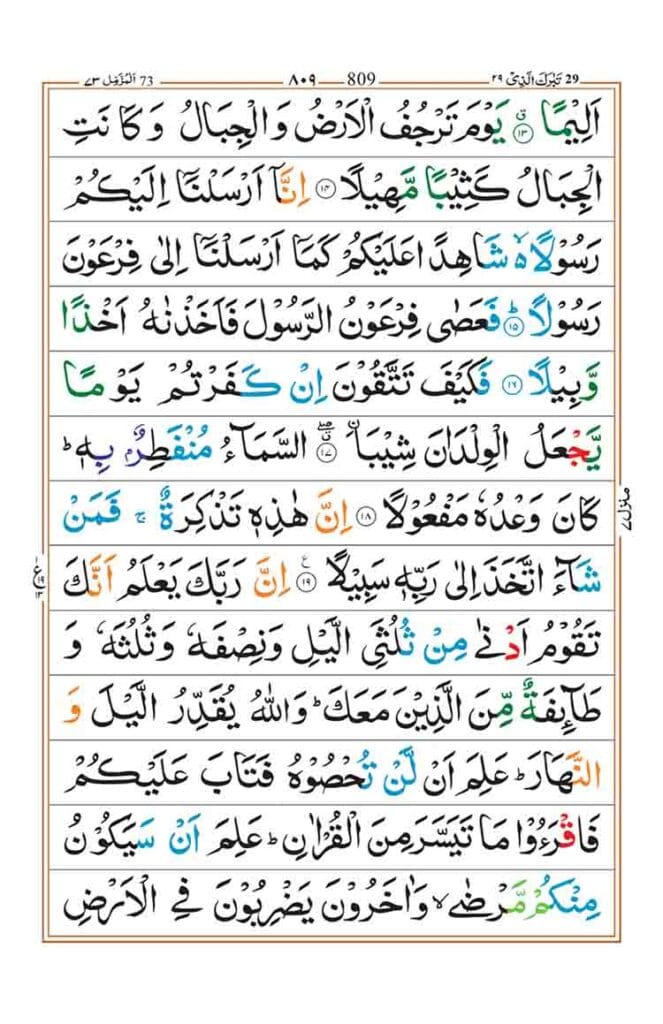 29 تَبٰرَكَ الَّذِیْ ٢٩
809 ٨٠٩
73 اَلْمُزَّمِّل ٧٣
اَلِیْمًا ۝١٣ۗ یَوْمَ تَرْجُفُ الْاَرْضُ وَ الْجِبَالُ وَ كَانَتِ
الْجِبَالُ كَثِیْبًا مَّهِیْلًا ۝١٤ اِنَّاۤ اَرْسَلْنَاۤ اِلَیْكُمْ
رَسُوْلًا ۙ۬ شَاهِدًا عَلَیْكُمْ كَمَاۤ اَرْسَلْنَاۤ اِلٰی فِرْعَوْنَ
رَسُوْلًا ؕ۝١٥ فَعَصٰی فِرْعَوْنُ الرَّسُوْلَ فَاَخَذْنٰهُ اَخْذًا
وَّبِیْلًا ۝١٦ فَكَیْفَ تَتَّقُوْنَ اِنْ كَفَرْتُمْ یَوْمًا
یَّجْعَلُ الْوِلْدَانَ شِیْبَا ۝١٧ۗۖ السَّمَآءُ مُنْفَطِرٌۢ بِهٖ ؕ
كَانَ وَعْدُهٗ مَفْعُوْلًا ۝١٨ اِنَّ هٰذِهٖ تَذْكِرَةٌ ۚ فَمَنْ
شَآءَ اتَّخَذَ اِلٰی رَبِّهٖ سَبِیْلًا ۝١٩ع اِنَّ رَبَّكَ یَعْلَمُ اَنَّكَ
تَقُوْمُ اَدْنٰی مِنْ ثُلُثَیِ الَّیْلِ وَنِصْفَهٗ وَثُلُثَهٗ وَ
طَآىِٕفَةٌ مِّنَ الَّذِیْنَ مَعَكَ ؕ وَاللّٰهُ یُقَدِّرُ الَّیْلَ وَ
النَّهَارَ ؕ عَلِمَ اَنْ لَّنْ تُحْصُوْهُ فَتَابَ عَلَیْكُمْ
فَاقْرَءُوْا مَا تَیَسَّرَ مِنَ الْقُرْاٰنِ ؕ عَلِمَ اَنْ سَیَكُوْنُ
مِنْكُمْ مَّرْضٰی ۙ وَاٰخَرُوْنَ یَضْرِبُوْنَ فِی الْاَرْضِ
منزل ٧
ع ١٩ ١٣